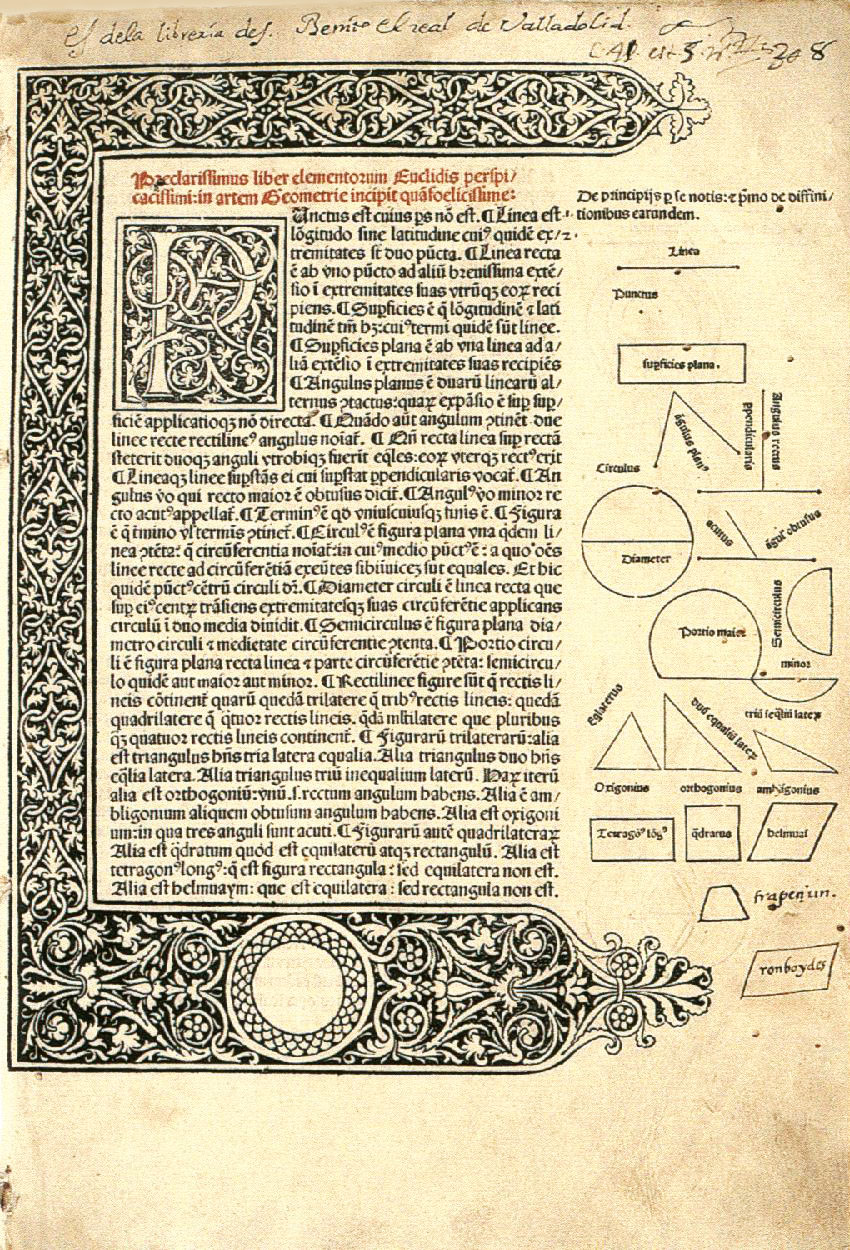 es dela libreria de S. Benito el real de Valladolid.
Preclarissimus liber elementorum Euclidis perspi/
cacissimi: in artem Geometrie incipit quāfoelicissime:
Punctus est cuius ps nō est. ¶ Linea est
lōgitudo sine latitudine cuiꝰ quidē ex/
tremitates st duo pūcta. ¶ Linea recta
ē ab vno pūcto ad aliū breuissima extē/
sio ī extremitates suas vtrūqꝫ eoꝝ reci
piens. ¶ Supficies ē q̄ lōgitudinē ⁊ lati
tudinē tm̄ hꝫ: cuiꝰ termi quidē sūt linee.
¶ Supficies plana ē ab vna linea ad a/
liā extēsio ī extremitates suas recipiēs
¶ Angulus planus ē duarū linearū al/
ternus ꝯtactus: quaꝝ expāsio ē sup sup/
ficiē applicatioqꝫ nō directa. ¶ Quādo aut angulum ꝯtinēt due
linee recte rectilineꝰ angulus noiat̄. ¶ Qn̄ recta linea sup rectā
steterit duoqꝫ anguli vtrobiqꝫ fuerit eq̄les: eoꝝ vterqꝫ rectꝰ erit
¶ Lineaqꝫ linee supstās ei cui supstat ppendicularis vocat̄. ¶ An
gulus vo qui recto maior ē obtusus dicit̄. ¶ Angulꝰ vo minor re
cto acutꝰ appellat̄. ¶ Terminꝰ ē qd vniuscuiusqꝫ finis ē. ¶ Figura
ē q̄ tmino vl termis ꝯtinet̄. ¶ Circulꝰ ē figura plana vna qdem li/
nea ꝯtēta: q̄ circūferentia noiat̄: in cuiꝰ medio pūctꝰ ē: a quo oēs
linee recte ad circūferētiā exeūtes sibiinuicē sūt equales. Et hic
quidē pūctꝰ cētrū circuli dr̄. ¶ Diameter circuli ē linea recta que
sup eiꝰ centꝝ trāsiens extremitatesqꝫ suas circūferētie applicans
circulū ī duo media diuidit. ¶ Semicirculus ē figura plana dia/
metro circuli ⁊ medietate circūferentie ꝯtenta. ¶ Portio circu/
li ē figura plana recta linea ⁊ parte circūferētie ꝯtēta: semicircu/
lo quidē aut maior aut minor. ¶ Rectilinee figure sūt q̄ rectis li/
neis cōtinent̄ quarū quedā trilatere q̄ tribꝰ rectis lineis: quedā
quadrilatere q̄ q̄tuor rectis lineis. qdā mltilatere que pluribus
qꝫ quatuor rectis lineis continent̄. ¶ Figurarū trilaterarū: alia
est triangulus hn̄s tria latera equalia. Alia triangulus duo hn̄s
eq̄lia latera. Alia triangulus triū inequalium laterū. Haꝝ iterū
alia est orthogoniū: vnū .s. rectum angulum habens. Alia ē am/
bligonium aliquem obtusum angulum habens. Alia est oxigoni
um: in qua tres anguli sunt acuti. ¶ Figurarū autē quadrilateraꝝ
Alia est q̄dratum quod est equilaterū atqꝫ rectangulū. Alia est
tetragonꝰ longꝰ: q̄ est figura rectangula: sed equilatera non est.
Alia est helmuaym: que est equilatera: sed rectangula non est.
De principijs p se notis: ⁊ pmo de diffini/
tionibus earundem.
Linea
Punctus
supficies plana.
āgulus planꝰ
ppendicularis
Angulus rectus
Circulus
Diameter
acutus
āgulꝰ obtusus
Portio maior
Semicirculus
minor
Eqlaterus
duoꝝ equaliū lateꝝ
triū īeq̄liū lateꝝ
Oxigonius orthogonius ambligonius
Tetragōꝰ lōgꝰ q̄dratus helmuaī
trapeziun.
ronboydes